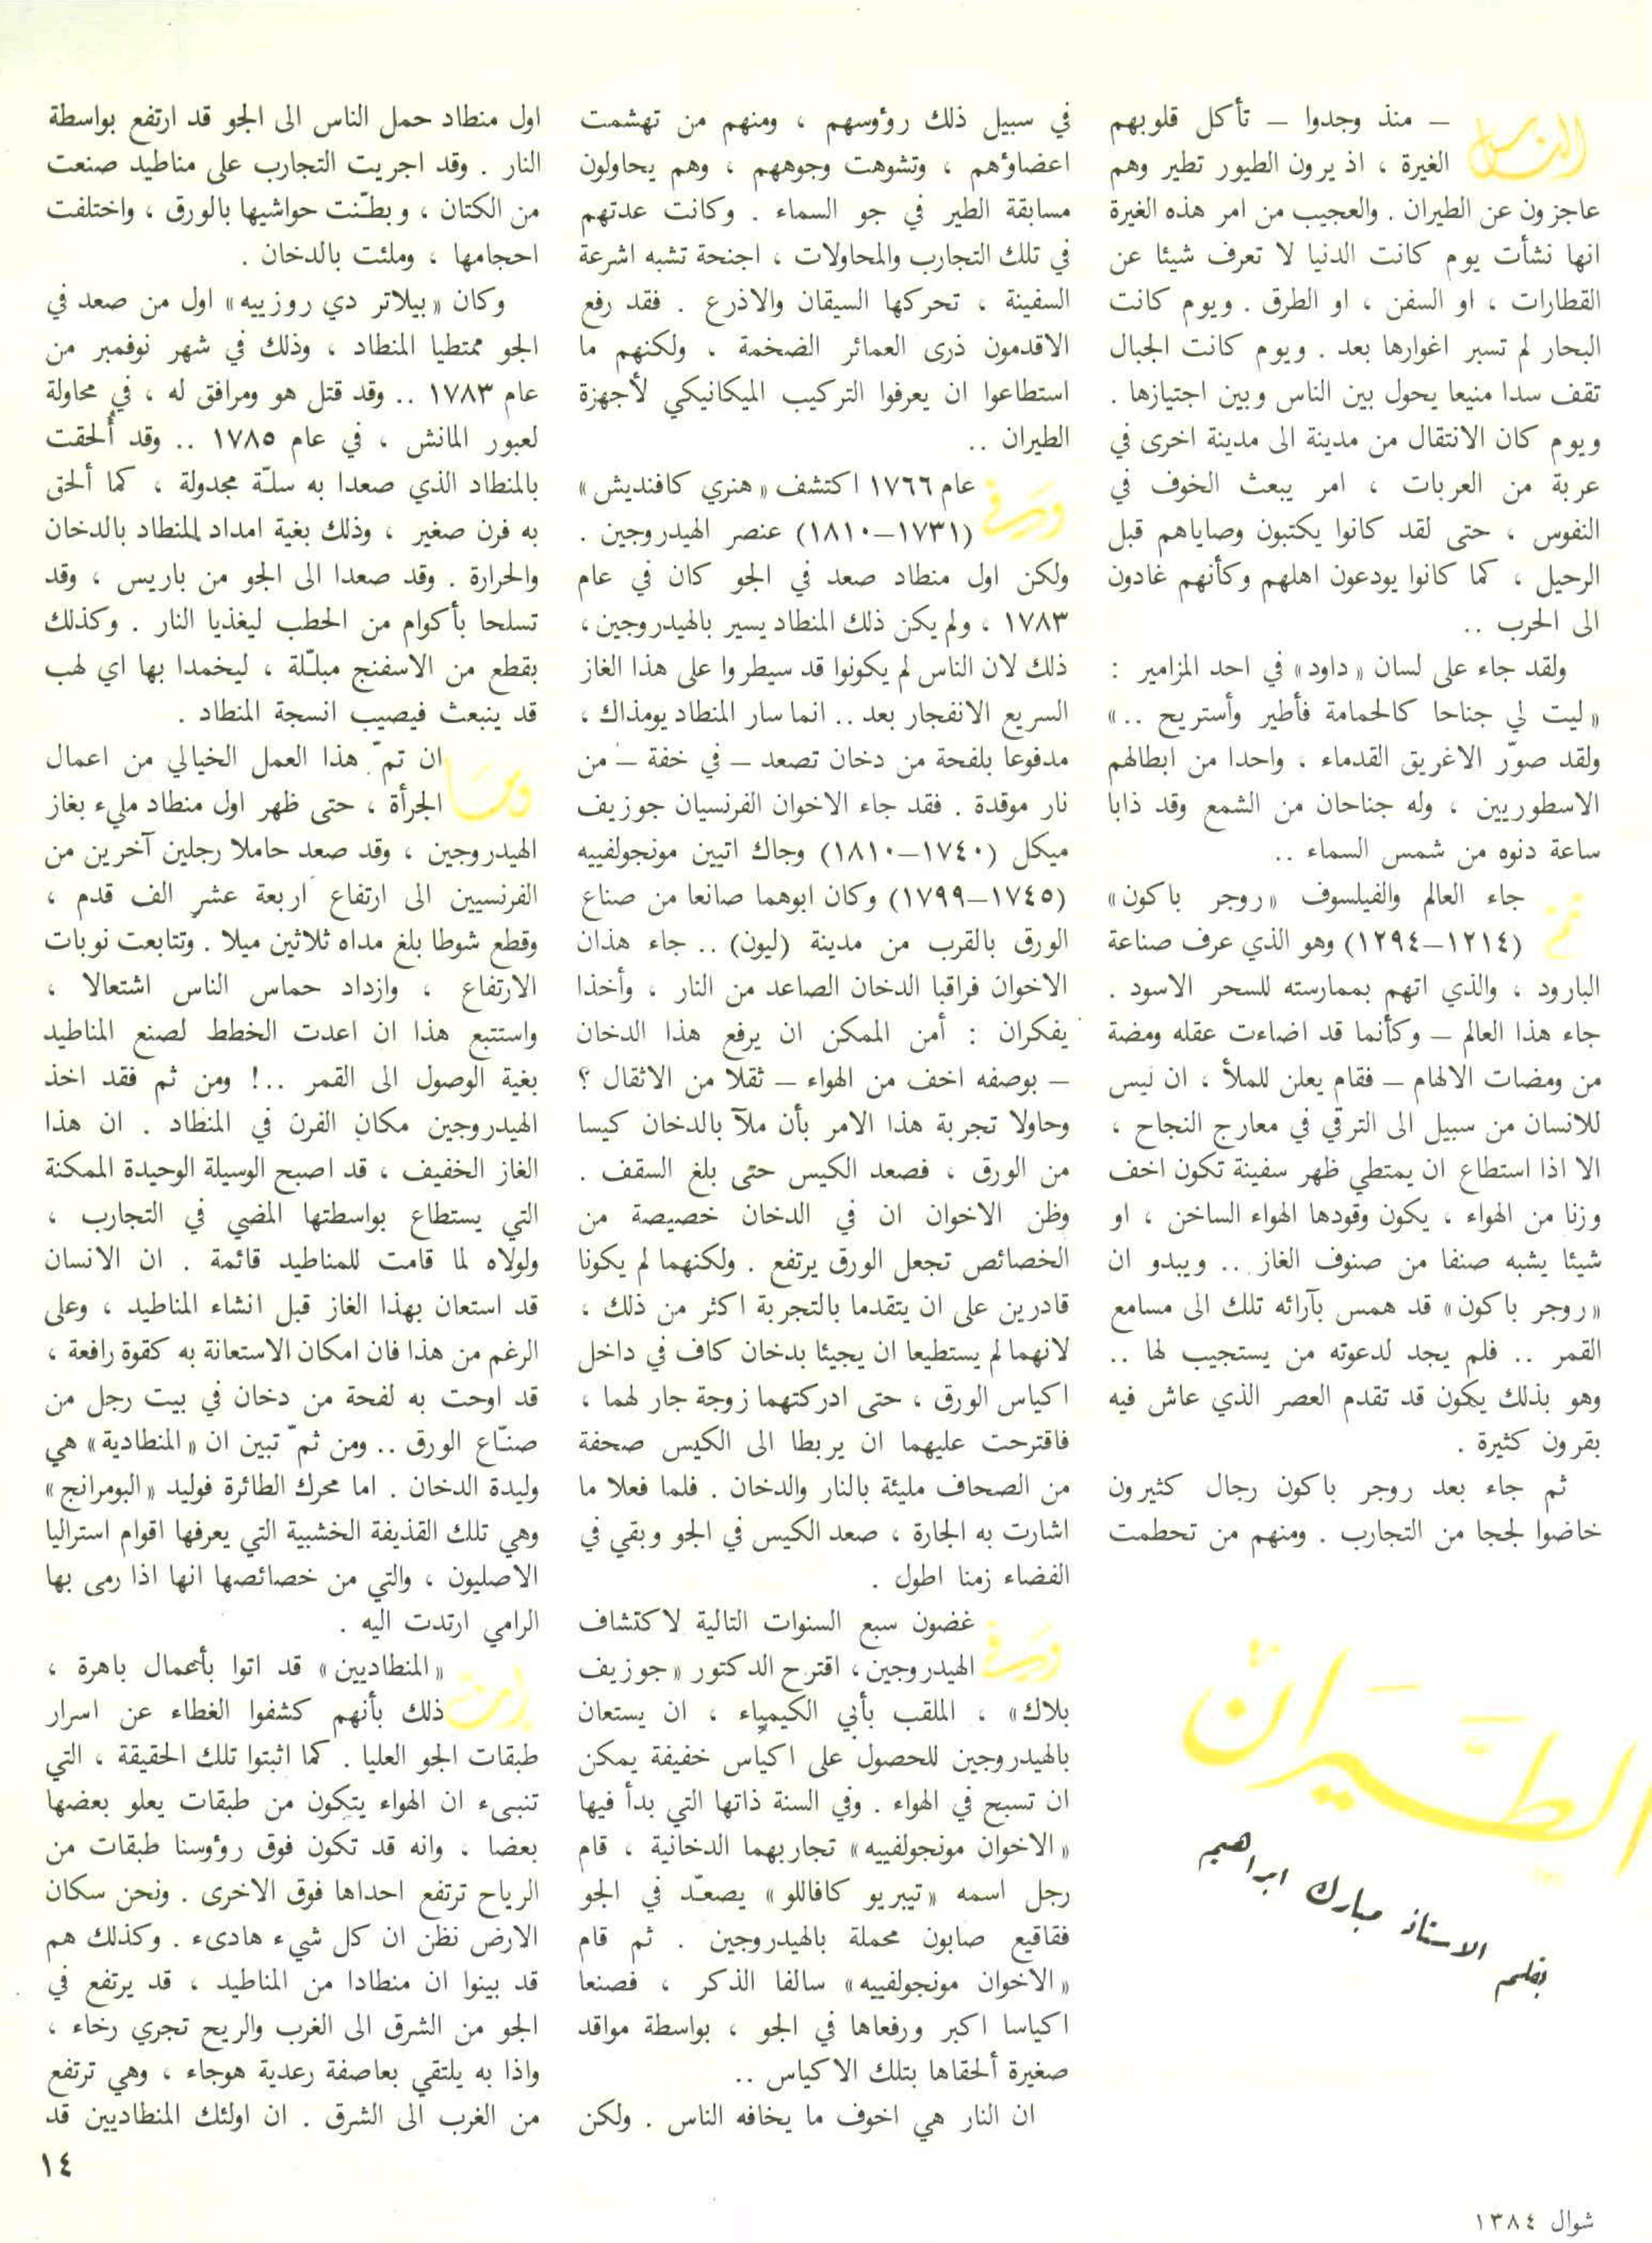 الناس – منذ وجدوا – تأكل قلوبهم
الغيرة ، اذ يرون الطيور تطير وهم
عاجزون عن الطيران . والعجيب من امر هذه الغيرة
انها نشأت يوم كانت الدنيا لا تعرف شيئا عن
القطارات ، او السفن ، او الطرق . ويوم كانت
البحار لم تسبر اغوارها بعد . ويوم كانت الجبال
تقف سدا منيعا يحول بين الناس وبين اجتيازها .
ويوم كان الانتقال من مدينة الى مدينة اخرى في
عربة من العربات ، امر يبعث الخوف في
النفوس ، حتى لقد كانوا يكتبون وصاياهم قبل
الرحيل ، كما كانوا يودعون اهلهم وكأنهم غادون
الى الحرب ..
ولقد جاء على لسان «داود» في احد المزامير :
«ليت لي جناحا كالحمامة فأطير وأستريح ..»
ولقد صوّر الاغريق القدماء ، واحدا من ابطالهم
الاسطوريين ، وله جناحان من الشمع وقد ذابا
ساعة دنوه من شمس السماء ..
ثم جاء العالم والفيلسوف «روجر باكون»
(١٢١٤–١٢٩٤) وهو الذي عرف صناعة
البارود ، والذي اتهم بممارسته للسحر الاسود .
جاء هذا العالم – وكأنما قد اضاءت عقله ومضة
من ومضات الالهام – فقام يعلن للملأ ، ان ليس
للانسان من سبيل الى الترقي في معارج النجاح ،
الا اذا استطاع ان يمتطي ظهر سفينة تكون اخف
وزنا من الهواء ، يكون وقودها الهواء الساخن ، او
شيئا يشبه صنفا من صنوف الغاز .. ويبدو ان
«روجر باكون» قد همس بآرائه تلك الى مسامع
القمر .. فلم يجد لدعوته من يستجيب لها ..
وهو بذلك يكون قد تقدم العصر الذي عاش فيه
بقرون كثيرة .
ثم جاء بعد روجر باكون رجال كثيرون
خاضوا لججا من التجارب . ومنهم من تحطمت
الطيران
بقلم الاستاذ مبارك ابراهيم
في سبيل ذلك رؤوسهم ، ومنهم من تهشمت
اعضاؤهم ، وتشوهت وجوههم ، وهم يحاولون
مسابقة الطير في جو السماء . وكانت عدتهم
في تلك التجارب والمحاولات ، اجنحة تشبه اشرعة
السفينة ، تحركها السيقان والاذرع . فقد رفع
الاقدمون ذرى العمائر الضخمة ، ولكنهم ما
استطاعوا ان يعرفوا التركيب الميكانيكي لأجهزة
الطيران ..
وفي عام ١٧٦٦ اكتشف «هنري كافنديش»
(١٧٣١–١٨١٠) عنصر الهيدروجين .
ولكن اول منطاد صعد في الجو كان في عام
١٧٨٣ ، ولم يكن ذلك المنطاد يسير بالهيدروجين،
ذلك لان الناس لم يكونوا قد سيطروا على هذا الغاز
السريع الانفجار بعد .. انما سار المنطاد يومذاك ،
مدفوعا بلفحة من دخان تصعد – في خفة – من
نار موقدة . فقد جاء الاخوان الفرنسيان جوزيف
ميكل (١٧٤٠–١٨١٠) وجاك اتيين مونجولفييه
(١٧٤٥–١٧٩٩) وكان ابوهما صانعا من صناع
الورق بالقرب من مدينة (ليون) .. جاء هذان
الاخوان فراقبا الدخان الصاعد من النار ، وأخذا
يفكران : أمن الممكن ان يرفع هذا الدخان
– بوصفه اخف من الهواء – ثقلا من الاثقال ؟
وحاولا تجربة هذا الامر بأن ملآ بالدخان كيسا
من الورق ، فصعد الكيس حتى بلغ السقف .
وظن الاخوان ان في الدخان خصيصة من
الخصائص تجعل الورق يرتفع . ولكنهما لم يكونا
قادرين على ان يتقدما بالتجربة اكثر من ذلك ،
لانهما لم يستطيعا ان يجيئا بدخان كاف في داخل
اكياس الورق ، حتى ادركتهما زوجة جار لهما ،
فاقترحت عليهما ان يربطا الى الكيس صحفة
من الصحاف مليئة بالنار والدخان . فلما فعلا ما
اشارت به الجارة ، صعد الكيس في الجو وبقي في
الفضاء زمنا اطول .
وفي غضون سبع السنوات التالية لاكتشاف
الهيدروجين، اقترح الدكتور «جوزيف
بلاك» ، الملقب بأبي الكيمياء ، ان يستعان
بالهيدروجين للحصول على اكياس خفيفة يمكن
ان تسبح في الهواء . وفي السنة ذاتها التي بدأ فيها
«الاخوان مونجولفييه» تجاربهما الدخانية ، قام
رجل اسمه «تيبريو كافاللو» يصعّد في الجو
فقاقيع صابون محملة بالهيدروجين . ثم قام
«الاخوان مونجولفييه» سالفا الذكر ، فصنعا
اكياسا اكبر ورفعاها في الجو ، بواسطة مواقد
صغيرة ألحقاها بتلك الاكياس ..
ان النار هي اخوف ما يخافه الناس . ولكن
اول منطاد حمل الناس الى الجو قد ارتفع بواسطة
النار . وقد اجريت التجارب على مناطيد صنعت
من الكتان ، وبطّنت حواشيها بالورق ، واختلفت
احجامها ، وملئت بالدخان .
وكان «بيلاتر دي روزييه» اول من صعد في
الجو ممتطيا المنطاد ، وذلك في شهر نوفمبر من
عام ١٧٨٣ .. وقد قتل هو ومرافق له ، في محاولة
لعبور المانش ، في عام ١٧٨٥ .. وقد أُلحقت
بالمنطاد الذي صعدا به سلّة مجدولة ، كما ألحق
به فرن صغير ، وذلك بغية امداد المنطاد بالدخان
والحرارة . وقد صعدا الى الجو من باريس ، وقد
تسلحا بأكوام من الحطب ليغذيا النار . وكذلك
بقطع من الاسفنج مبلّلة ، ليخمدا بها اي لهب
قد ينبعث فيصيب انسجة المنطاد .
وما ان تمّ هذا العمل الخيالي من اعمال
الجرأة ، حتى ظهر اول منطاد مليء بغاز
الهيدروجين ، وقد صعد حاملا رجلين آخرين من
الفرنسيين الى ارتفاع اربعة عشر الف قدم ،
وقطع شوطا بلغ مداه ثلاثين ميلا . وتتابعت نوبات
الارتفاع ، وازداد حماس الناس اشتعالا ،
واستتبع هذا ان اعدت الخطط لصنع المناطيد
بغية الوصول الى القمر ..! ومن ثم فقد اخذ
الهيدروجين مكان الفرن في المنطاد . ان هذا
الغاز الخفيف ، قد اصبح الوسيلة الوحيدة الممكنة
التي يستطاع بواسطتها المضي في التجارب ،
ولولاه لما قامت للمناطيد قائمة . ان الانسان
قد استعان بهذا الغاز قبل انشاء المناطيد ، وعلى
الرغم من هذا فان امكان الاستعانة به كقوة رافعة ،
قد اوحت به لفحة من دخان في بيت رجل من
صنّاع الورق .. ومن ثمّ تبين ان «المنطادية» هي
وليدة الدخان . اما محرك الطائرة فوليد «البومرانج»
وهي تلك القذيفة الخشبية التي يعرفها اقوام استراليا
الاصليون ، والتي من خصائصها انها اذا رمى بها
الرامي ارتدت اليه .
ان «المنطاديين» قد اتوا بأعمال باهرة ،
ذلك بأنهم كشفوا الغطاء عن اسرار
طبقات الجو العليا . كما اثبتوا تلك الحقيقة ، التي
تنبىء ان الهواء يتكون من طبقات يعلو بعضها
بعضا ، وانه قد تكون فوق رؤوسنا طبقات من
الرياح ترتفع احداها فوق الاخرى . ونحن سكان
الارض نظن ان كل شيء هادىء . وكذلك هم
قد بينوا ان منطادا من المناطيد ، قد يرتفع في
الجو من الشرق الى الغرب والريح تجري رخاء ،
واذا به يلتقي بعاصفة رعدية هوجاء ، وهي ترتفع
من الغرب الى الشرق . ان اولئك المنطاديين قد
١٤
شوال ١٣٨٤